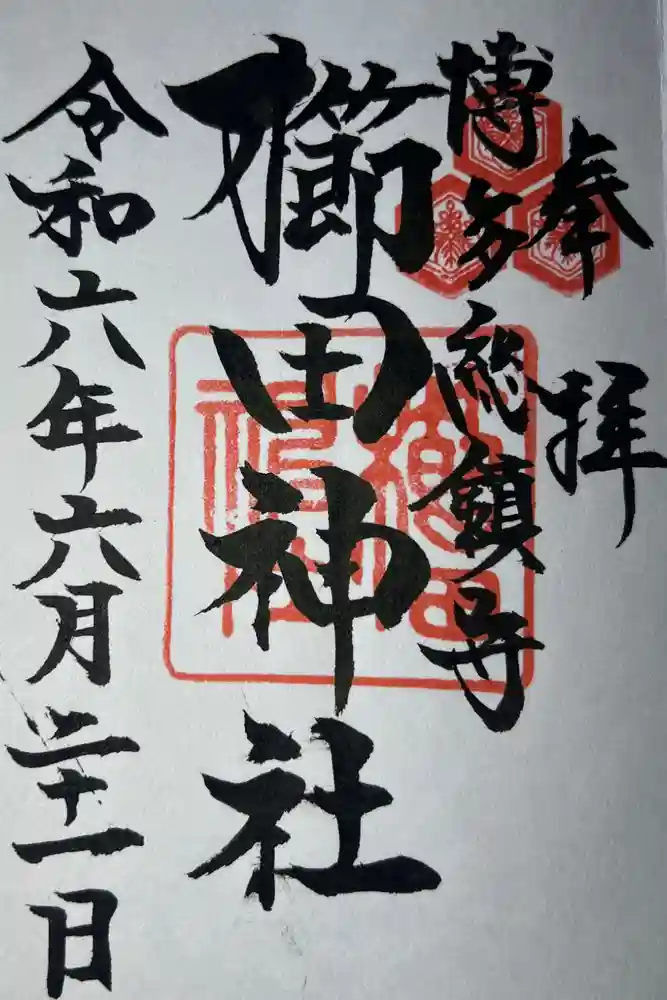 奉拝
博多総鎮守
櫛田神社
櫛田神社
令和六年六月二十一日